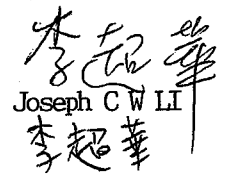 李超華
Joseph C W LI
李超華